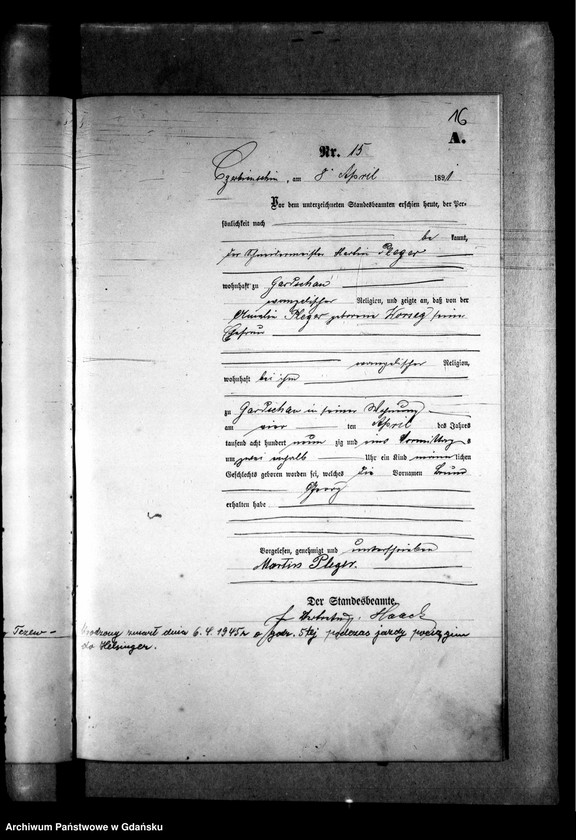 16
A.
Nr. 15
am 8 April 1891
Vor dem unterzeichneten Standesbeamten erschien heute, der Per-
sönlichkeit nach
be kannt,
der Schneidermeister Martin Pleger
wohnhaft zu Gardschau
evangelischer Religion, und zeigte an, daß von der
Amalie Pleger geborene seiner
Ehefrau
evangelischer Religion,
wohnhaft bei ihm
zu Gardschau in seiner Wohnung
am vier ten April des Jahres
tausend acht hundert neun zig und eins Vormittag s
um zwei einhalb Uhr ein Kind männ lichen
Geschlechts geboren worden sei, welches die Vornamen Bruno
Georg
erhalten habe
Vorgelesen, genehmigt und unterschrieben
Martin Pleger.
Der Standesbeamte.
Vertretung. Haack
Tczew - Urodzony zmarł dnia 6.4.1945r o godz. 5tej podczas jazdy pociągiem
do Helsinger.
Archiwum Państwowe w Gdańsku